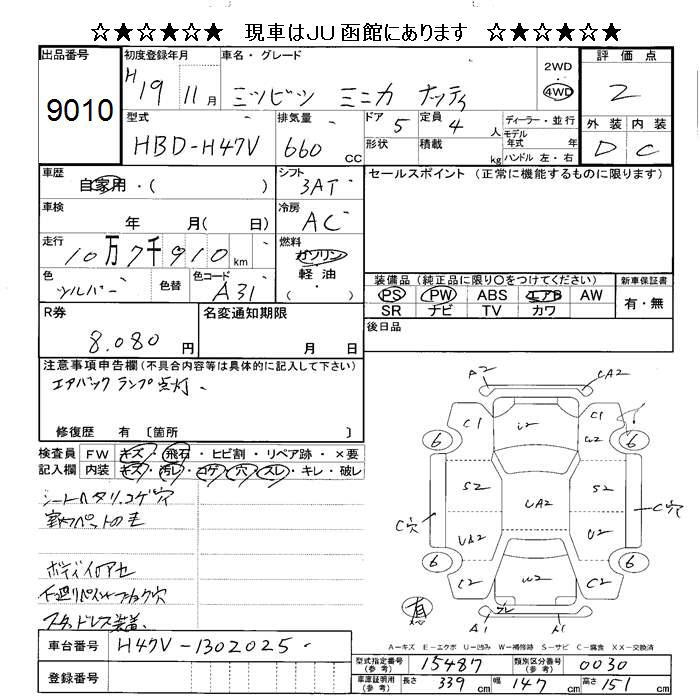 ☆★☆★☆★ 現車はJU函館にあります ☆★☆★☆★
出品番号
9010
初度登録年月
H 19 11月
車名・グレード
ミツビシ ミニカ ナッティ
2WD
・
4WD
評価点
2
外装 内装
D C
型式
HBD-H47V
排気量
660 CC
ドア 5
定員 4 人
形状
積載 kg
ディーラー・並行
モデル
年式 年
ハンドル 左・右
車歴
自家用・( )
シフト
3AT
セールスポイント (正常に機能するものに限ります)
車検
年 月( 日)
冷房
AC
走行
10万7千910km
燃料
ガソリン
軽油・
( )
色
シルバー
色替
色コード
A31
装備品 (純正品に限り○をつけてください)
PS PW ABS エアB AW
SR ナビ TV カワ
新車保証書
有・無
R券
8.080 円
名変通知期限
月 日
後日品
注意事項申告欄 (不具合内容等は具体的に記入して下さい)
エアバックランプ点灯、
修復歴 有 〔箇所 〕
検査員
記入欄
FW キズ・飛石・ヒビ割・リペア跡・×要
内装 キズ・汚レ・コゲ・穴・スレ・キレ・破レ
シートヘタリ.コゲ穴
ボディイロアセ
下廻りペイント
スタッドレス装着.
A2 CA2
C1 U2 C1
6 W2 6
S2 UA2 S2
C穴 C穴
UA2 U2
6 6
C2 W2 C2
A1 A1
A-キズ E-エクボ U-凹み W-補修跡 S-サビ C-腐食 XX-交換済
車台番号 H47V-1302025
登録番号
型式指定番号
(参考)
15487
類別区分番号
(参考)
0030
車庫証明用
(参考)
長さ 339 cm 幅 147 cm 高さ 151 cm